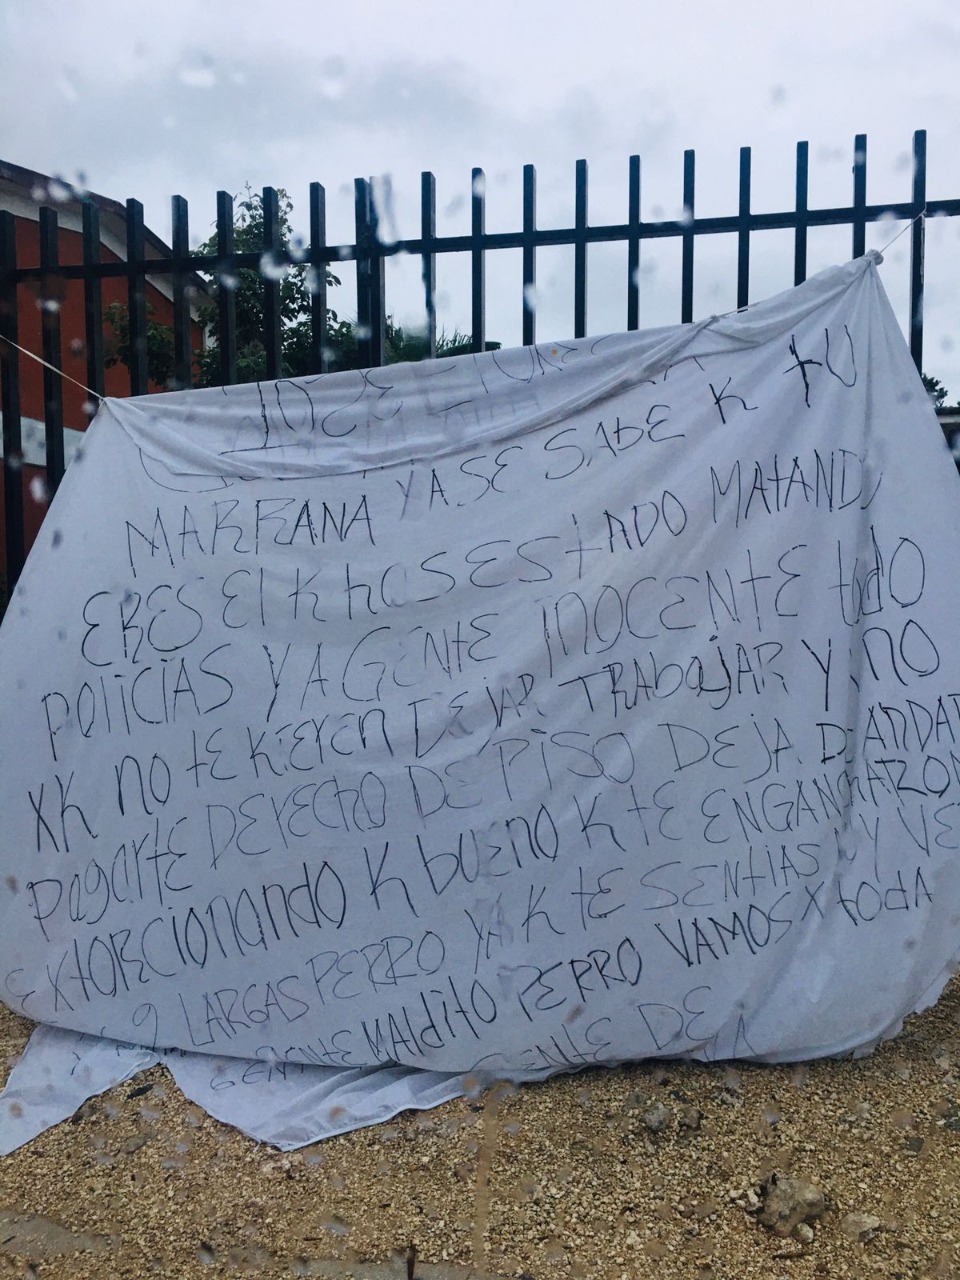 MARRANA YA SE SABE K tU
ERES El K hAS EStADO MAtANDO
POlICIAS Y A GENtE INOCENtE tOdO
XK NO tE KIEREN DEJAR TRAbajAR Y NO
PagartE DERECHO DE PISO DEJA D ANDAR
EXtORCIONAndO K buENO K tE ENGANCHARON
LARGAS PERRO YA K tE SENtIAS MUY VE
GENtE MAldItO PERRO VAMOS X tOdA
GENtE DE